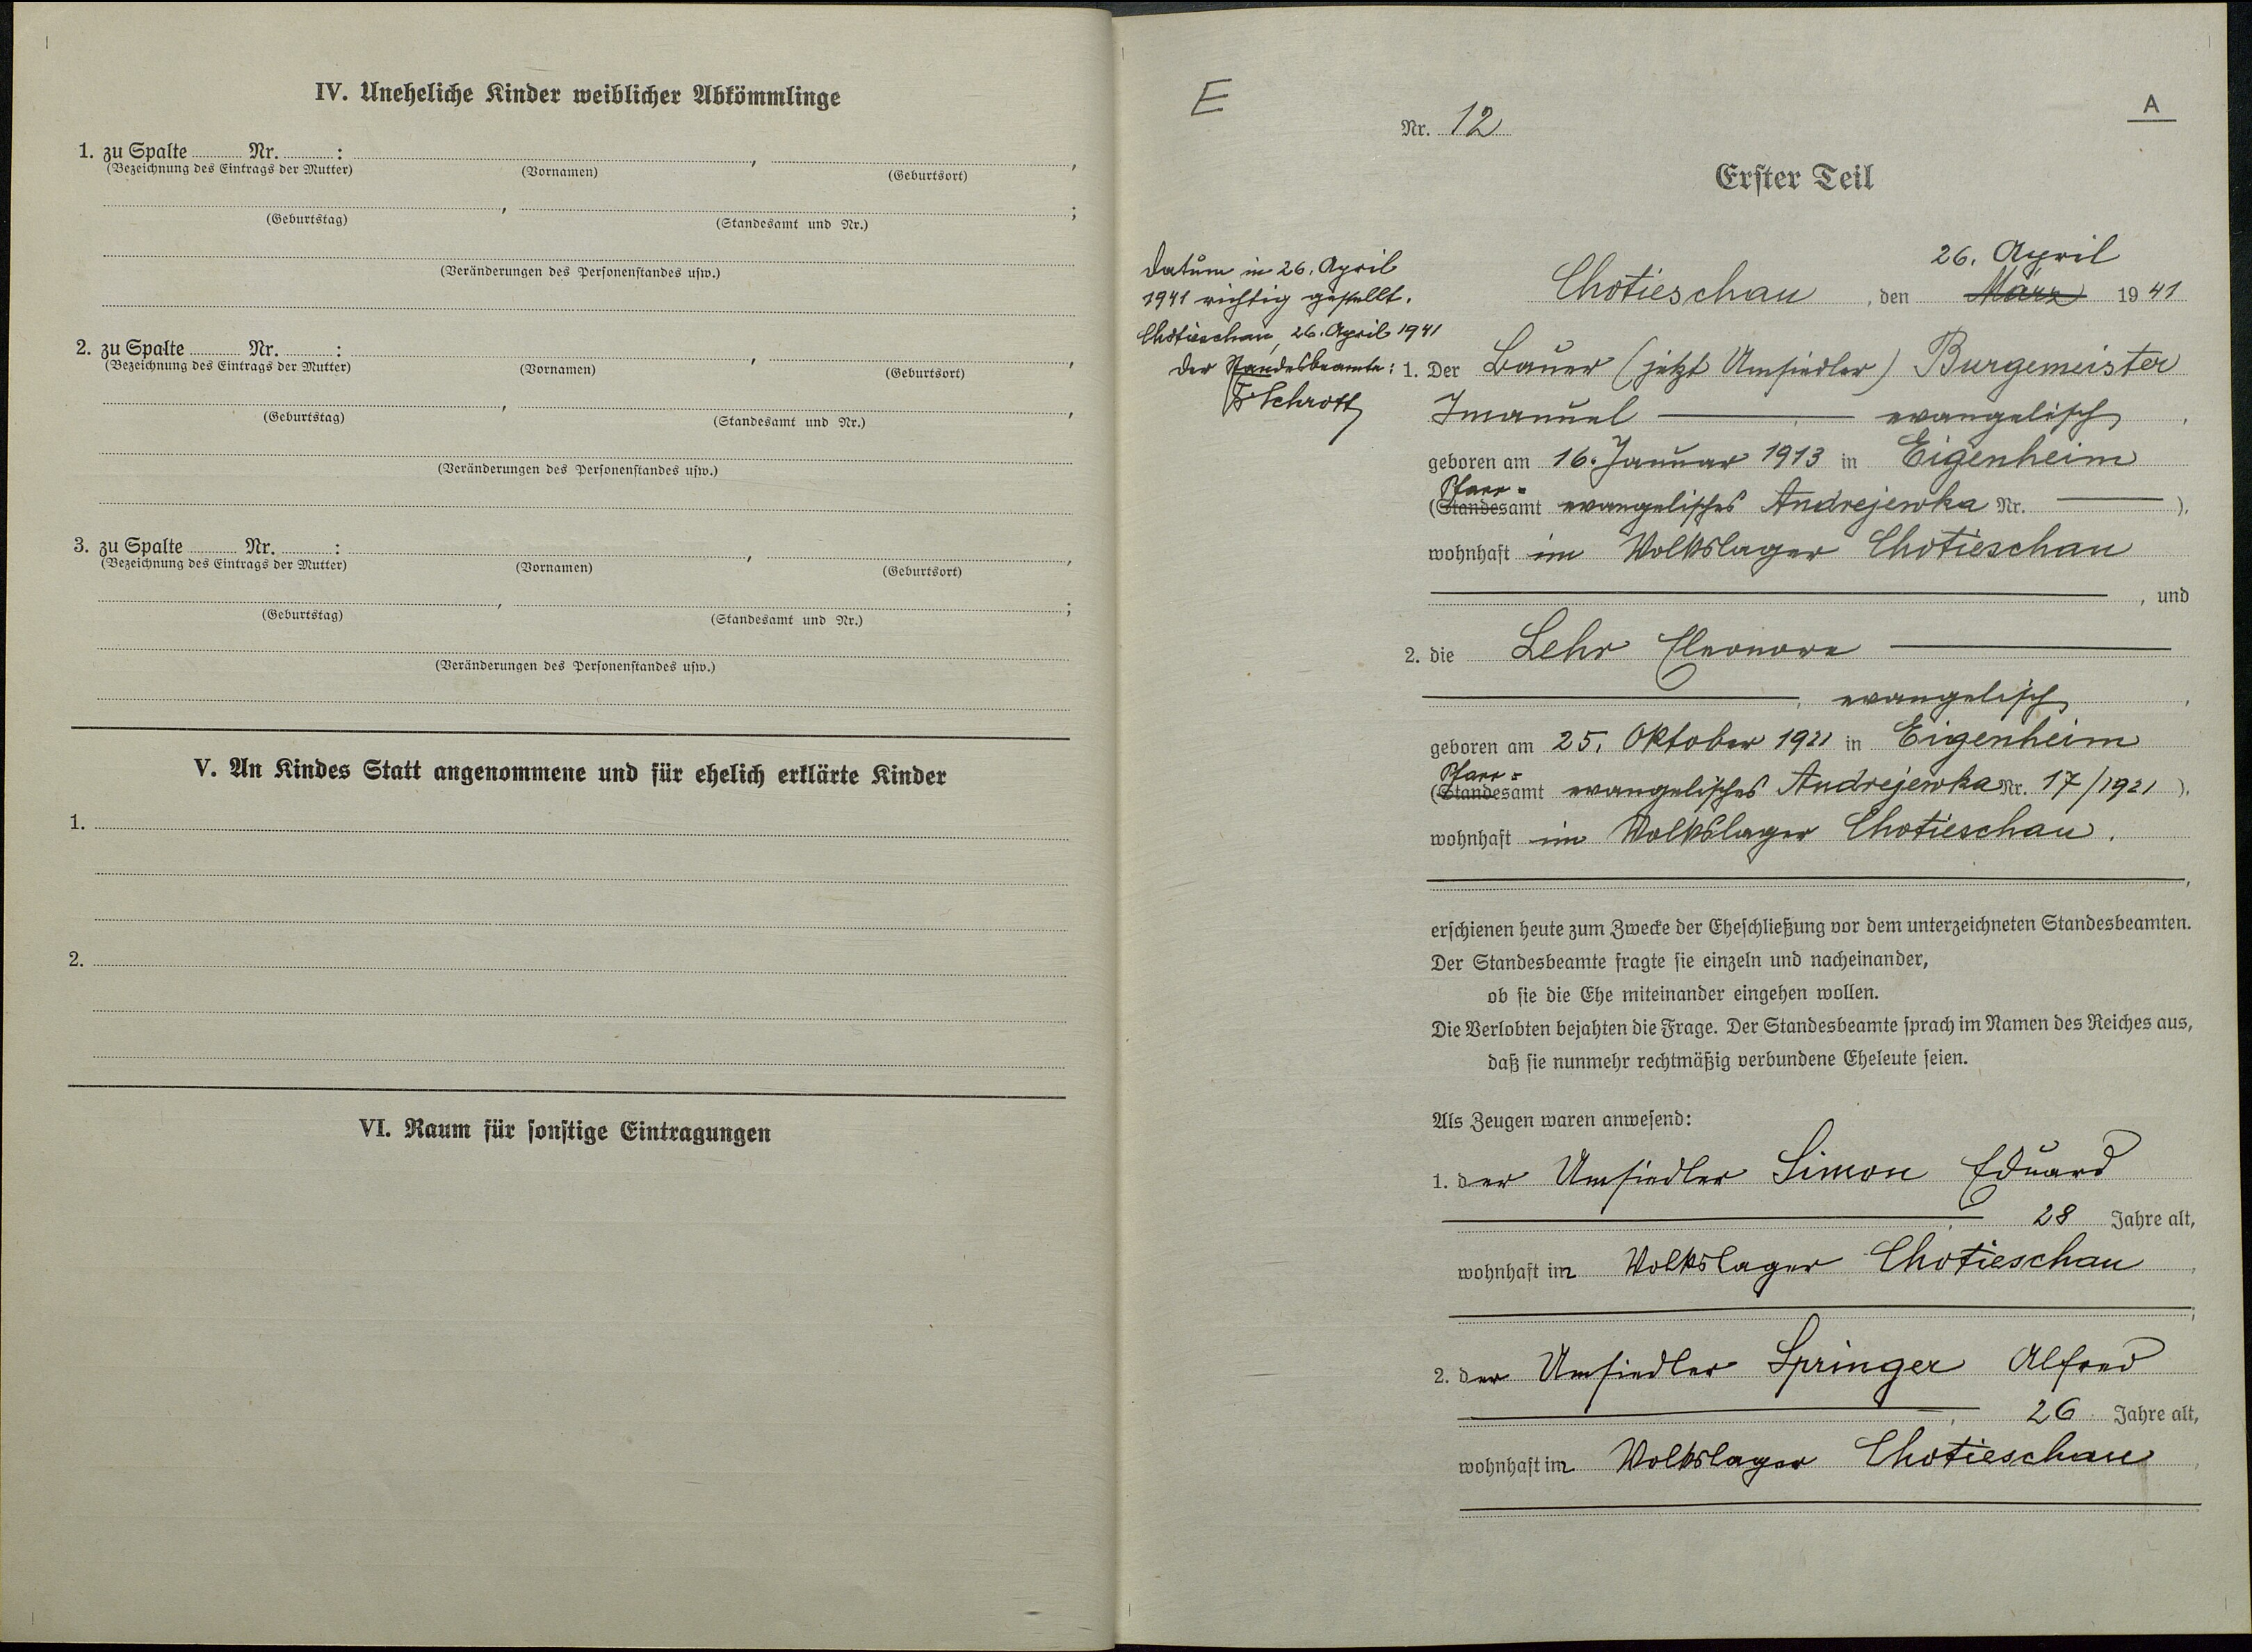 IV. Uneheliche Kinder weiblicher Abkömmlinge
1. zu Spalte Nr. : , ,
(Bezeichnung des Eintrags der Mutter) (Vornamen) (Geburtsort)
, ;
(Geburtstag) (Standesamt und Nr.)
(Veränderungen des Personenstandes usw.)
2. zu Spalte Nr. : , ,
(Bezeichnung des Eintrags der Mutter) (Vornamen) (Geburtsort)
, ,
(Geburtstag) (Standesamt und Nr.)
(Veränderungen des Personenstandes usw.)
3. zu Spalte Nr. : , ,
(Bezeichnung des Eintrags der Mutter) (Vornamen) (Geburtsort)
, ;
(Geburtstag) (Standesamt und Nr.)
(Veränderungen des Personenstandes usw.)
V. An Kindes Statt angenommene und für ehelich erklärte Kinder
1.
2.
VI. Raum für sonstige Eintragungen
E
A
Nr. 12
Erster Teil
Datum in 26. April
1941 richtig gestellt.
Chotieschau, 26. April 1941
Der Standesbeamte:
F. Schrott
26. April
Chotieschau, den März 1941
1. Der Bauer (jetzt Umsiedler) Burgemeister
Imanuel — evangelisch,
geboren am 16. Januar 1913 in Eigenheim
Pfarr-
(Standesamt evangelisches Andrejewka Nr. — ),
wohnhaft im Volkslager Chotieschau
, und
2. die Lehr Eleonore —
—, evangelisch,
geboren am 25. Oktober 1921 in Eigenheim
Pfarr-
(Standesamt evangelisches Andrejewka Nr. 17/1921 ),
wohnhaft im Volkslager Chotieschau.
,
erschienen heute zum Zwecke der Eheschließung vor dem unterzeichneten Standesbeamten.
Der Standesbeamte fragte sie einzeln und nacheinander,
ob sie die Ehe miteinander eingehen wollen.
Die Verlobten bejahten die Frage. Der Standesbeamte sprach im Namen des Reiches aus,
daß sie nunmehr rechtmäßig verbundene Eheleute seien.
Als Zeugen waren anwesend:
1. der Umsiedler Simon Eduard
—, 28 Jahre alt,
wohnhaft im Volkslager Chotieschau,
;
2. der Umsiedler Springer Alfred
—, 26 Jahre alt,
wohnhaft im Volkslager Chotieschau,
.